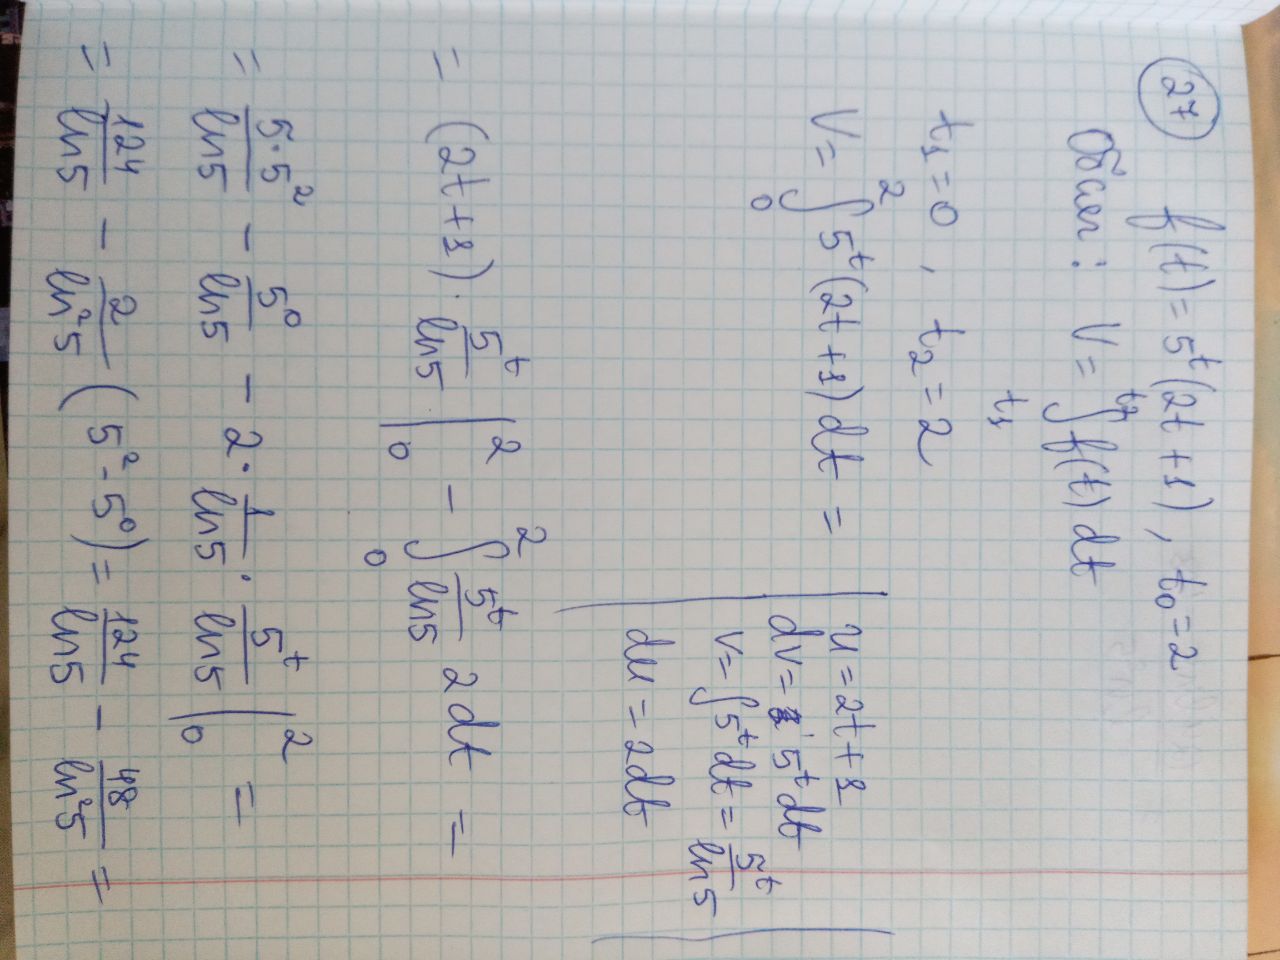 27 f(t) = 5^t (2t+1), t₀ = 2
Обсяг: V = ∫_{t₁}^{t₂} f(t) dt
t₁ = 0, t₂ = 2
V = ∫_0^2 5^t (2t+1) dt =
| u = 2t+1
dv = 5^t dt
v = ∫ 5^t dt = 5^t / ln 5
du = 2dt |
= (2t+1) · 5^t / ln 5 |_0^2 − ∫_0^2 5^t / ln 5 2 dt =
= 5·5^2 / ln 5 − 5^0 / ln 5 − 2 · 1 / ln 5 · 5^t / ln 5 |_0^2 =
= 124 / ln 5 − 2 / ln² 5 (5^2 - 5^0) = 124 / ln 5 − 48 / ln² 5 =